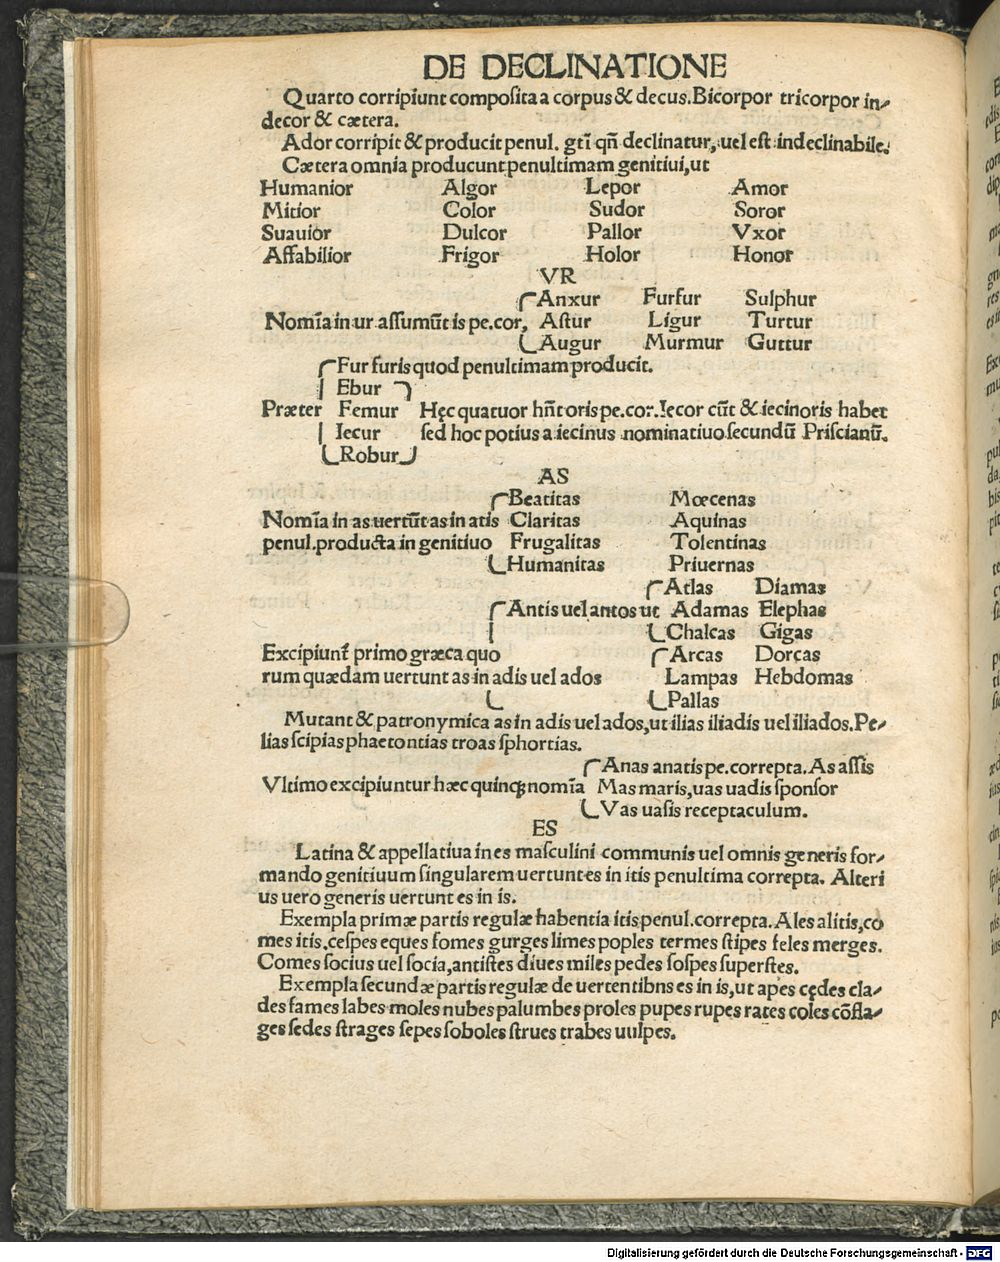 DE DECLINATIONE
Quarto corripiunt composita a corpus & decus. Bicorpor tricorpor in-
decor & cætera.
Ador corripit & producit penul. gtī qn̄ declinatur, uel est indeclinabile.
Cætera omnia producunt penultimam genitiui, ut
Humanior Algor Lepor Amor
Mitior Color Sudor Soror
Suauior Dulcor Pallor Vxor
Affabilior Frigor Holor Honor
VR
Anxur Furfur Sulphur
Nomīa in ur assumūt is pe. cor, Astur Ligur Turtur
Augur Murmur Guttur
Fur furis quod penultimam producit.
Ebur
Præter Femur Hęc quatuor hn̄t oris pe. cor. Iecor cūt & iecinoris habet
Iecur sed hoc potius a iecinus nominatiuo secundū Priscianū.
Robur
AS
Beatitas Mœcenas
Nomīa in as uertūt as in atis Claritas Aquinas
penul. producta in genitiuo Frugalitas Tolentinas
Humanitas Priuernas
Atlas Diamas
Antis uel antos ut Adamas Elephas
Chalcas Gigas
Excipiunt̄ primo græca quo Arcas Dorcas
rum quædam uertunt as in adis uel ados Lampas Hebdomas
Pallas
Mutant & patronymica as in adis uel ados, ut ilias iliadis uel iliados. Pe-
lias scipias phaetontias troas sphortias.
Anas anatis pe. correpta. As assis
Vltimo excipiuntur hæc quinqꝫ nomīa Mas maris, uas uadis sponsor
Vas uasis receptaculum.
ES
Latina & appellatiua in es masculini communis uel omnis generis for-
mando genitiuum singularem uertunt es in itis penultima correpta. Alteri
us uero generis uertunt es in is.
Exempla primæ partis regulæ habentia itis penul. correpta. Ales alitis, co
mes itis. cespes eques fomes gurges limes poples termes stipes feles merges.
Comes socius uel socia, antistes diues miles pedes sospes superstes.
Exempla secundæ partis regulæ de uertentibns es in is, ut apes cędes cla-
des fames labes moles nubes palumbes proles pupes rupes rates coles cōfla-
ges sedes strages sepes soboles strues trabes uulpes.
Digitalisierung gefördert durch die Deutsche Forschungsgemeinschaft - DFG